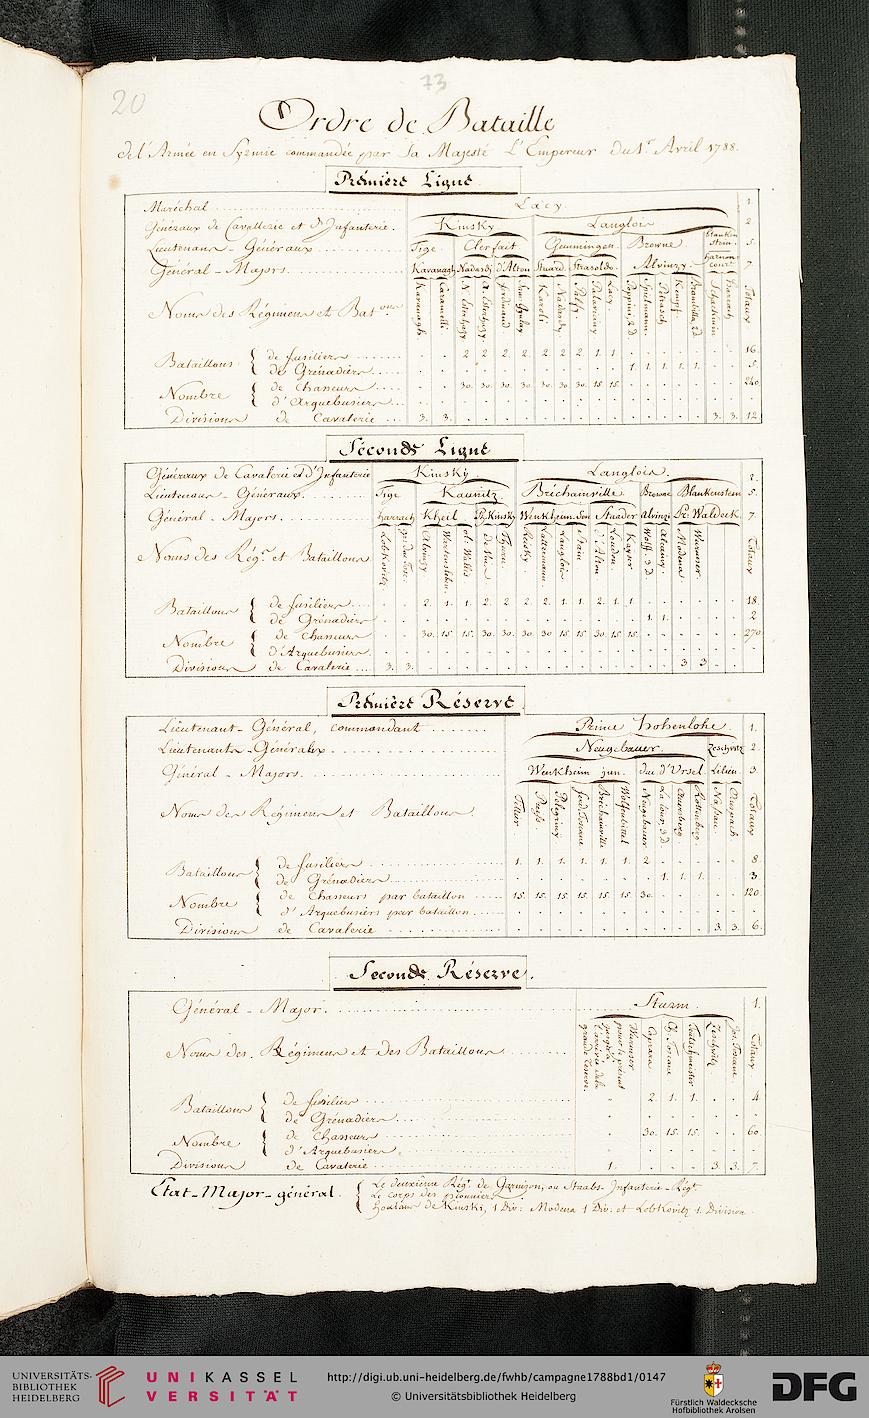 73
20
Ordre de Bataille
de l'Armée en Syrmie commandée par Sa Majesté L'Empereur du 1r Avril 1788.
Première Ligne
Maréchal Lacy 1.
Généraux de Cavallerie et d'Infanterie. Kinsky Langlois 2
Lieutenans-Généraux Tige Clerfait Gemmingen Browne Blankenstein 5.
Général-Majors Kavanagh Nadasdy d'Alton Stuard Strasoldo Alvinzy Harnoncourt 7
Noms des Régimens et Batons Kavanagh Caramelli N. Esterhazy A. Esterhazy Ferdinand Sam Gyulay Karoli Nadasdy Palfy Lacy Pétrasch Harrach Totaux
Bataillons de fusiliers 2 2 2. 2. 2 2 2 2. 1. 1. 16.
de Grénadiers 1. 1. 1. 1. 1. 5.
Nombre de Chasseurs 30. 30. 30. 30. 30. 30 30. 30. 15. 15. 240.
d'Arquebusiers
Divisions de Cavalerie 3. 3. 3. 3. 12
Séconde Ligne
Généraux de Cavalerie et d'Infanterie Kinsky Langlois. 2.
Lieutenans-Généraux Tige Kaunitz Bréchainville Browne Blankenstein 5.
Général-Majors Harrach Kheil Ph. Kinsky Wenkheim Sen Staader Alvinzi Pr. Waldeck 7.
Noms des Régs et Bataillons Lobkovitz Alvinzy Ol. Wallis de Vins Thurn Lattermann Langlois Stain d'Alton Loudon Kayser Wolff Modena Wurmser Totaux
Bataillons de fusiliers 2. 1. 1. 2. 2 2. 2. 2. 1. 1. 2. 1. 1 18.
de Grénadiers 1. 1. 2
Nombre de Chasseurs 30. 15. 15. 30. 30. 30. 30 15 15. 30. 15. 15. 270.
d'Arquebusiers
Divisions de Cavalerie 3. 3. 3 3.
Première Réserve
Lieutenant-Général, commandant Prince Hohenlohe 1.
Lieutenants-Généraux Neugebauer. Zeschvitz 2.
Général-Majors. Wenkheim jun. duc d'Ursel Lilien. 3.
Noms des Régimens et Bataillons. Tillier Preiss Pelegriny Ferd. Toscane Bréchainville Wolfenbüttel Neugebauer La tour, 3D Auersberg Rottenberg Nassau. Anspach Totaux
Bataillons de fusiliers 1. 1. 1. 1. 1. 1. 2 8.
de Grénadiers 1. 1. 1. 3.
Nombre de Chasseurs par bataillon 15. 15. 15. 15. 15. 15. 30. 120.
d'Arquebusiers par bataillon
Divisions de Cavalerie 3. 3. 6.
Seconde Réserve.
Général-Major. Sturm 1.
Noms des Régimens et des Bataillons Wurmser pour le présent Caprara Ch. Toscane Teutschmeister Zeschvitz Jos. Toscane. Totaux
Bataillons de fusiliers 2 1. 1. 4
de Grénadiers
Nombre de Chasseurs 30. 15. 15. 60.
d'Arquebusiers
Divisions de Cavalerie 1. 3. 3. 7.
Etat-Major-général. Le deuxième Régt. de Garnizon, ou Staabs-Infanterie-Régt.
Le corps des pionniers.
Houlans de Kinski, 1 Div: Modena 1 Div: et Lobkovitz 1. Division.
UNIVERSITÄTS-
BIBLIOTHEK
HEIDELBERG
UNIKASSEL
VERSITÄT
http://digi.ub.uni-heidelberg.de/fwhb/campagne1788bd1/0147
© Universitätsbibliothek Heidelberg
Fürstlich Waldecksche
Hofbibliothek Arolsen
DFG